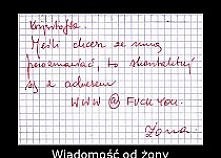 Krzysztofie.
Jeśli chcesz ze mną
porozmawiać to skontaktuj
się z adresem
WWW @ FUCK YOU.
Żona.
Wiadomość od żony